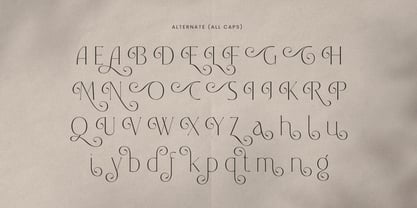 ALTERNATE (ALL CAPS)
A E A B D E L F G G H
M N O C S I I K R P
Q U V W X Y Z a h l u
i y b d f k p q t m n g